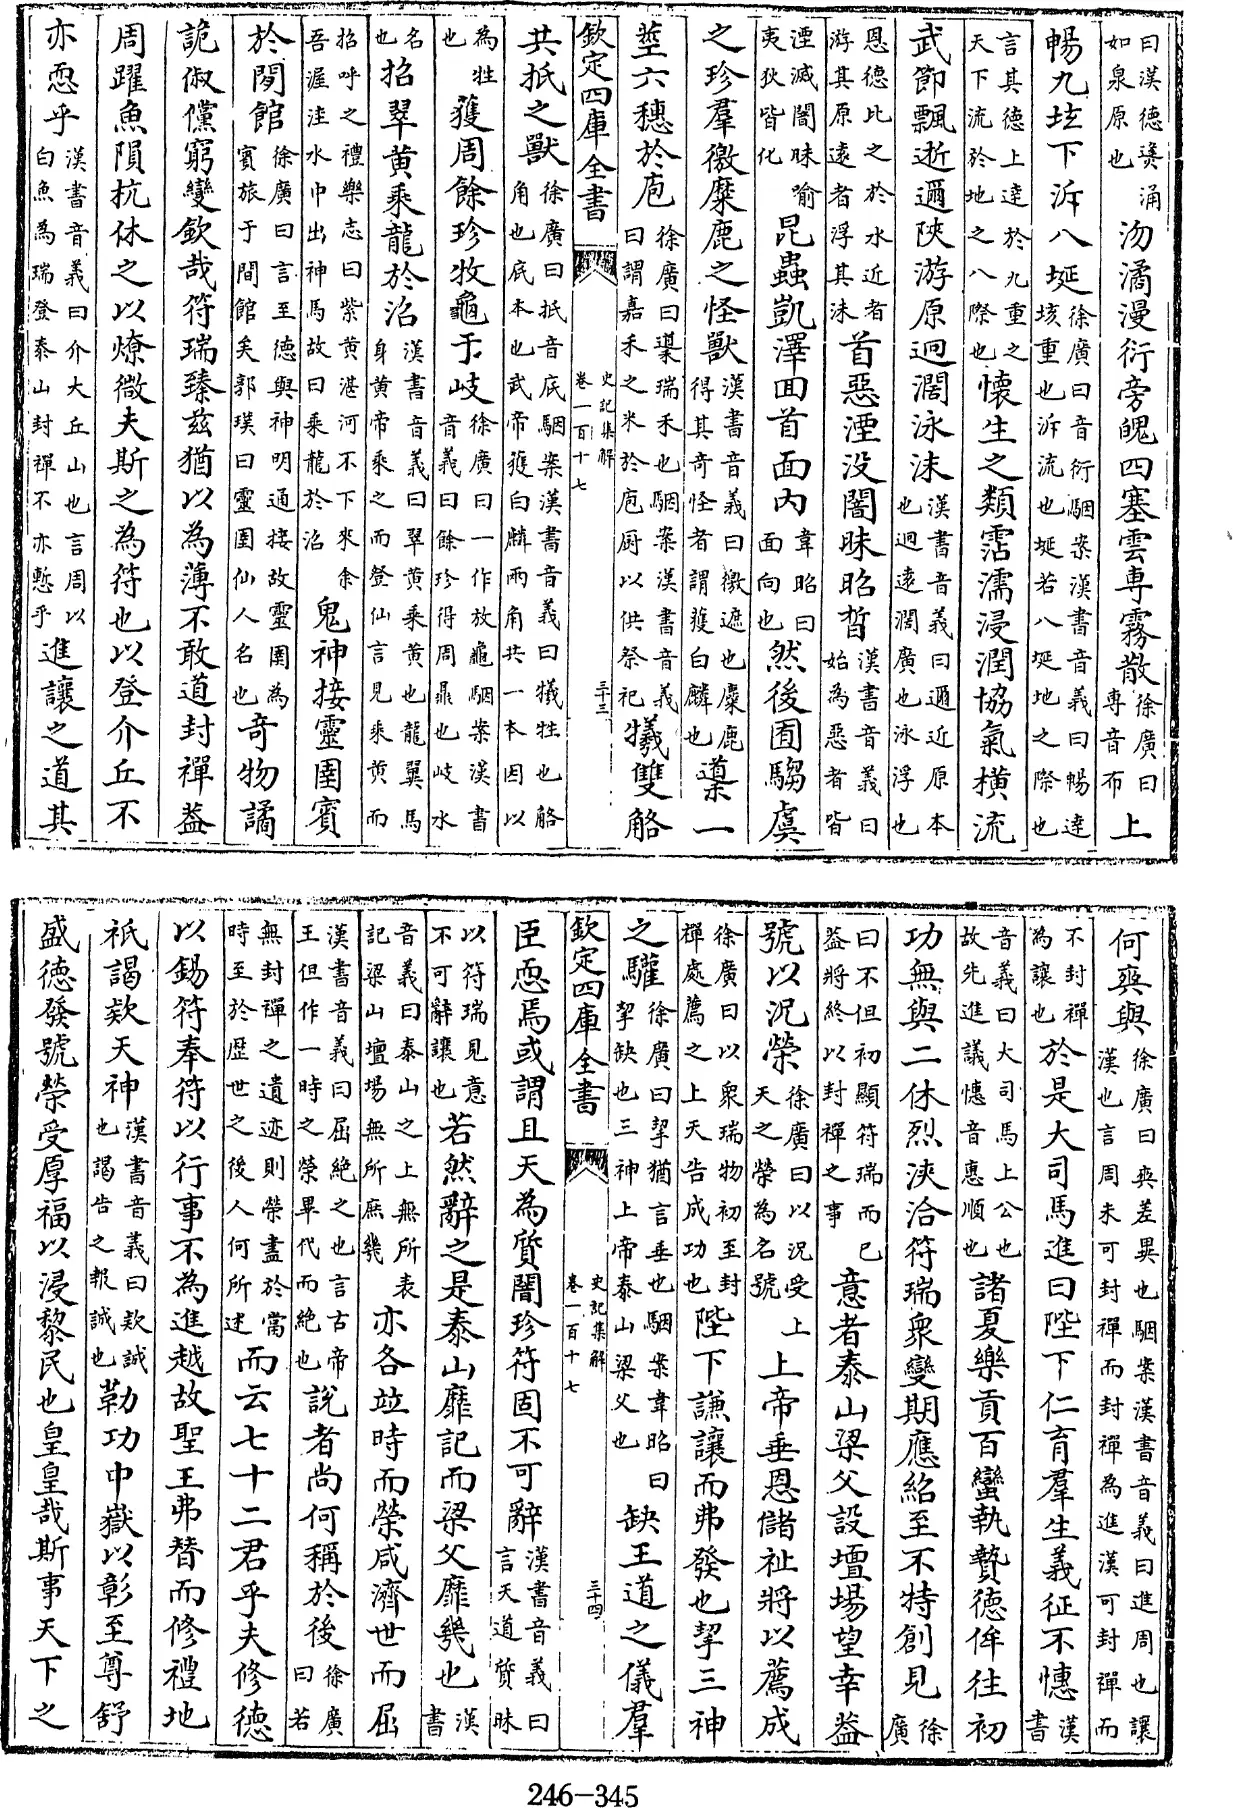 曰漢德熢涌如泉原也沕潏漫衍旁魄四塞雲専霧散徐廣曰専音布上
暢九垓下泝八埏徐廣曰音衍駰案漢書音義曰暢達垓重也泝流也埏若八埏地之際也
言其德上達於九重之天下流於地之八際也懷生之類霑濡浸潤協氣橫流
武節飄逝邇陜游原迥濶泳沫漢書音義曰邇近原本也迥遠濶廣也泳浮也
恩德比之於水近者游其原遠者浮其沫首惡湮没闇昧昭晢漢書音義曰始為惡者皆
湮滅闇昧喻夷狄皆化昆蟲凱澤回首面内韋昭曰面向也然後囿騶虞
之珍羣徼麋鹿之怪獸漢書音義曰徼遮也麋鹿得其奇怪者謂獲白麟也䆃一
莖六穗於庖徐廣曰䆃瑞禾也駰案漢書音義曰謂嘉禾之米於庖厨以供祭祀犧雙觡
欽定四庫全書 史記集解 卷一百十七 三十三
共抵之獸徐廣曰抵音底駰案漢書音義曰犧牲也觡角也底本也武帝獲白麟兩角共一本因以
為牲也獲周餘珍牧龜于岐徐廣曰一作放龜駰案漢書音義曰餘珍得周鼎也岐水
名也招翠黄乘龍於沼漢書音義曰翠黄乘黄也龍翼馬身黄帝乘之而登仙言見乘黄而
招呼之禮樂志曰紫黄湛河不下來余吾渥洼水中出神馬故曰乘龍於沼鬼神接靈圉賓
於閒館徐廣曰言至德與神明通接故靈圉為賓旅于閒館矣郭璞曰靈圉仙人名也奇物譎
詭俶儻窮變欽哉符瑞臻兹猶以為薄不敢道封禪葢
周躍魚隕杭休之以燎微夫斯之為符也以登介丘不
亦恧乎漢書音義曰介大丘山也言周以白魚為瑞登泰山封禪不亦慙乎進讓之道其
何爽與徐廣曰爽差異也駰案漢書音義曰進周也讓漢也言周未可封禪而封禪為進漢可封禪而
不封禪為讓也於是大司馬進曰陛下仁育羣生義征不憓漢書
音義曰大司馬上公也故先進議憓音惠順也諸夏樂貢百蠻執贄德侔往初
功無與二休烈浹洽符瑞衆變期應紹至不特創見徐廣
曰不但初顯符瑞而已葢將終以封禪之事意者泰山梁父設壇場望幸葢
號以況榮徐廣曰以況受上天之榮為名號上帝垂恩儲祉將以薦成
徐廣曰以衆瑞物初至封禪處薦之上天告成功也陛下謙讓而弗發也挈三神
之驩徐廣曰挈猶言垂也駰案韋昭曰挈缺也三神上帝泰山梁父也缺王道之儀羣
欽定四庫全書 史記集解 卷一百十七 三十四
臣恧焉或謂且天為質闇珍符固不可辭漢書音義曰言天道質昧
以符瑞見意不可辭讓也若然辭之是泰山靡記而梁父靡幾也漢書
音義曰泰山之上無所表記梁山壇場無所庶幾亦各竝時而榮咸濟世而屈
漢書音義曰屈絶之也言古帝王但作一時之榮畢代而絶也說者尚何稱於後徐廣曰若
無封禪之遺迹則榮盡於當時至於歴世之後人何所述而云七十二君乎夫修德
以錫符奉符以行事不為進越故聖王弗替而修禮地
祇謁欵天神漢書音義曰欵誠也謁告之報誠也勒功中嶽以彰至尊舒
盛德發號榮受厚福以浸黎民也皇皇哉斯事天下之
246-345